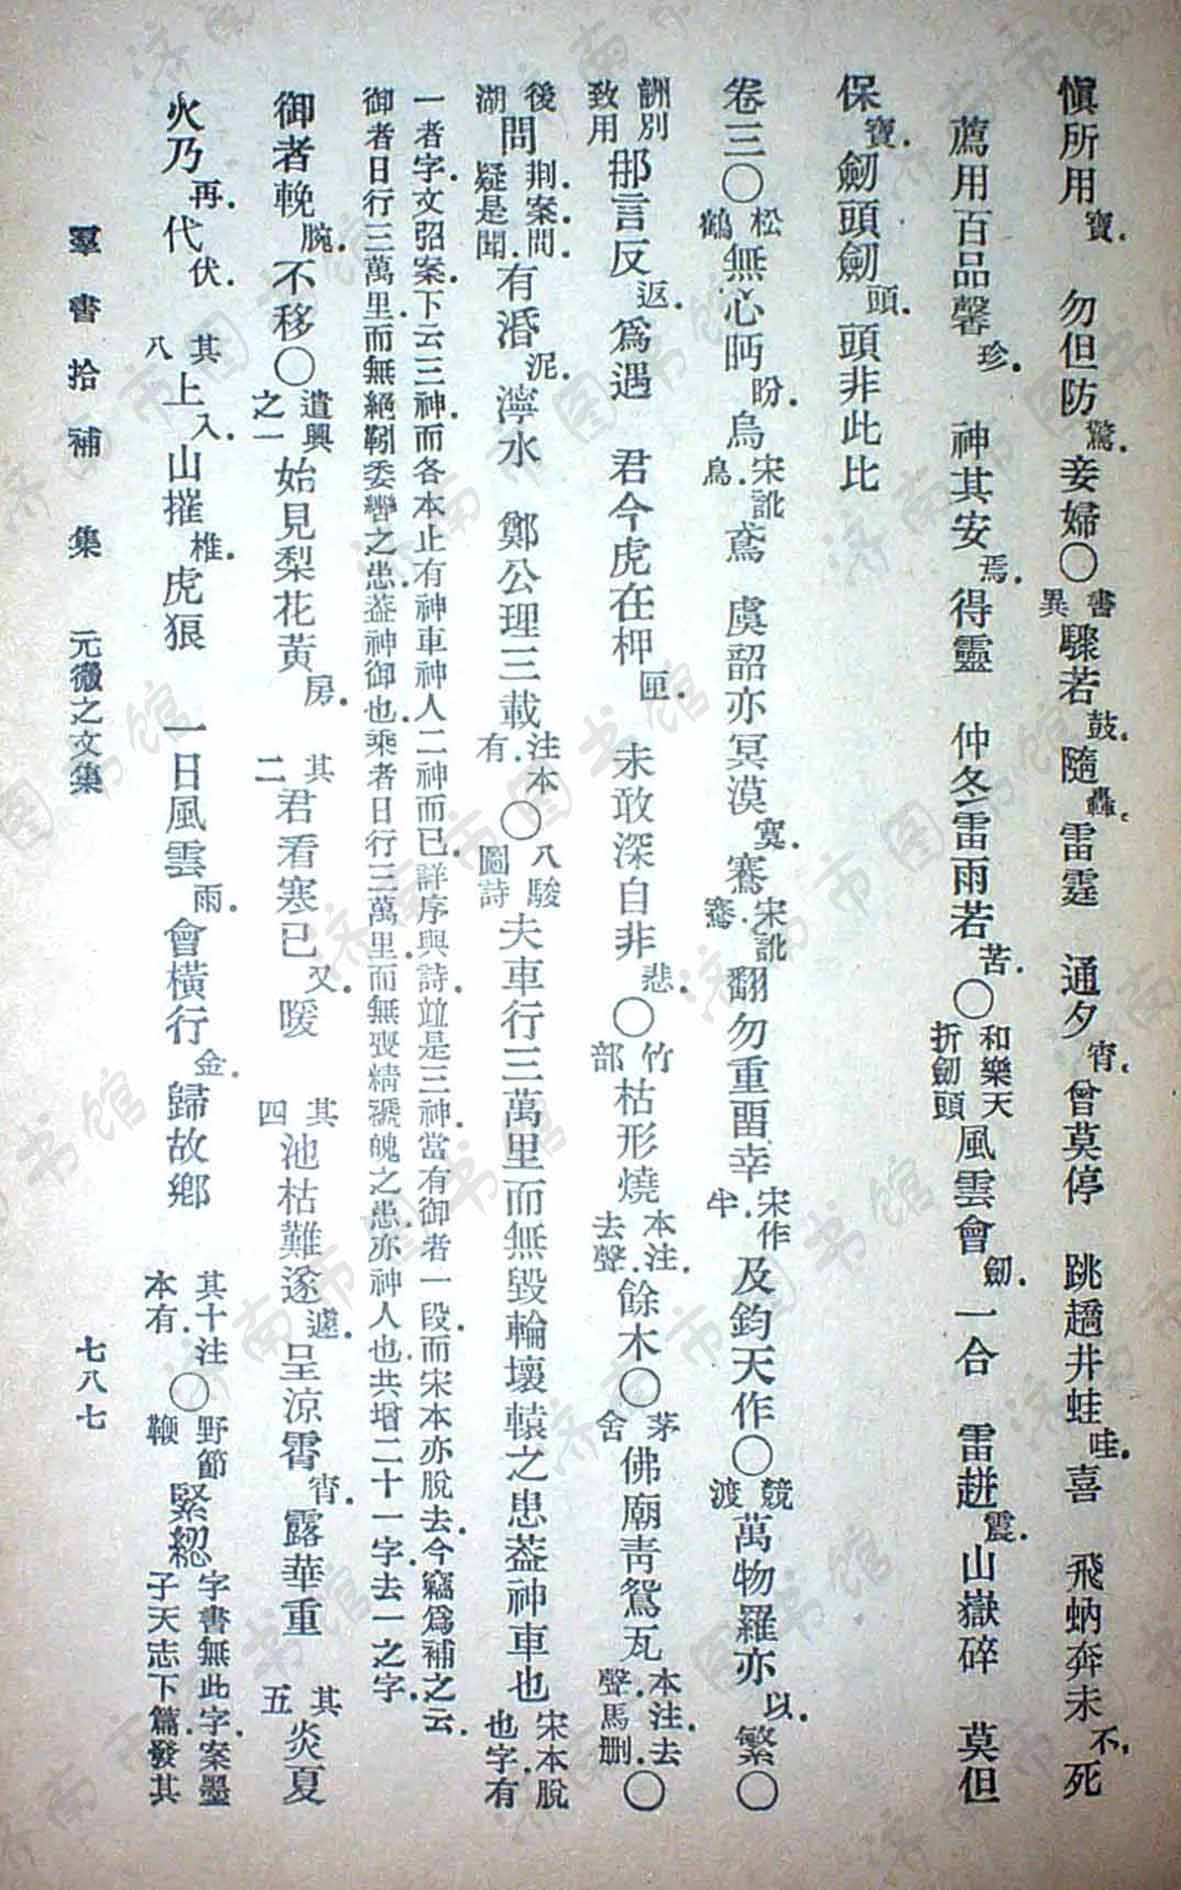 愼所用寶。 勿但防驚。妾婦〇書異驟若鼓。隨轟。雷霆 通夕宵。曾莫停 跳趫井蛙哇。喜 飛蚋奔未不。死
薦用百品馨珍。 神其安焉。得靈 仲冬雷雨若苦。〇和樂天折劒頭風雲會劒。一合 雷趂震。山嶽碎 莫但
保寶。劒頭劒頭。頭非此比
卷三〇松鶴無心眄盼。烏宋訛鳥。鳶 虞韶亦冥漠寞。騫宋訛騫。翻勿重畱幸宋作牛。及鈞天作〇競渡萬物羅亦以。繁〇
詶別致用郍言反返。爲遇 君今虎在柙匣。 未敢深自非悲。〇竹部枯形燒本注。去聲。餘木〇茅舍佛廟靑鴛瓦本注。去聲。馬删。〇
後湖問荆。案。問。疑是聞。有湣泥。濘水 鄭公理三載注本有。〇八駿圖詩夫車行三萬里而無毀輪壞轅之患葢神車也宋本脫也字。有
一者字。文弨案。下云三神。而各本止有神車神人二神而已。詳序與詩。竝是三神。當有御者一段。而宋本亦脫去。今竊爲補之云。
御者日行三萬里。而無絕靷委轡之患。葢神御也。乘者日行三萬里。而無喪精褫魄之患。亦神人也。共增二十一字。去一之字。
御者輓腕。不移〇遣興之一始見梨花黃房。 其二君看寒已又。暖 其四池枯難遂邃。呈涼霄宵。露華重 其五炎夏
火乃再。代伏。 其八上入。山摧椎。虎狼 一日風雲雨。會橫行金。歸故鄕 其十注本有。〇野節鞭緊緫字書無此字。案墨子天志下篇。發其
羣書拾補 集 元微之文集 七八七